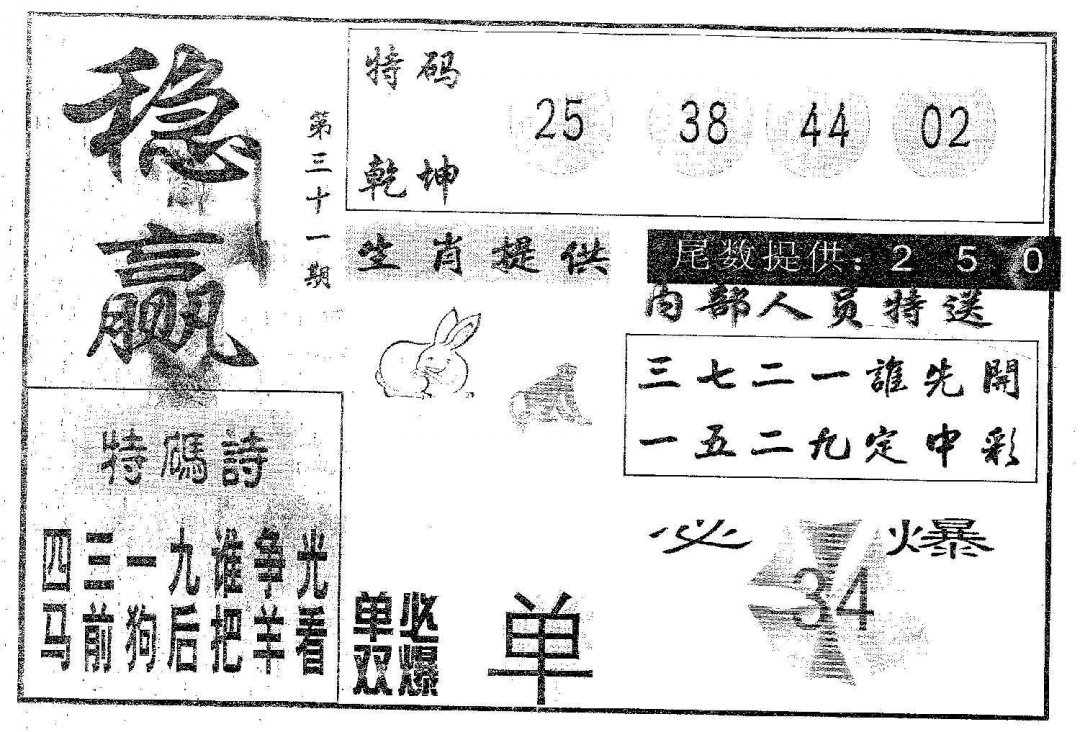 稳赢
第三十一期
特码
乾坤
25 38 44 02
生肖提供
尾数提供:250
内部人员特送
三七二一誰先開
一五二九定中彩
特碼詩
四三一九谁争光
马前狗后把羊看
单双
必爆
单
必爆
34